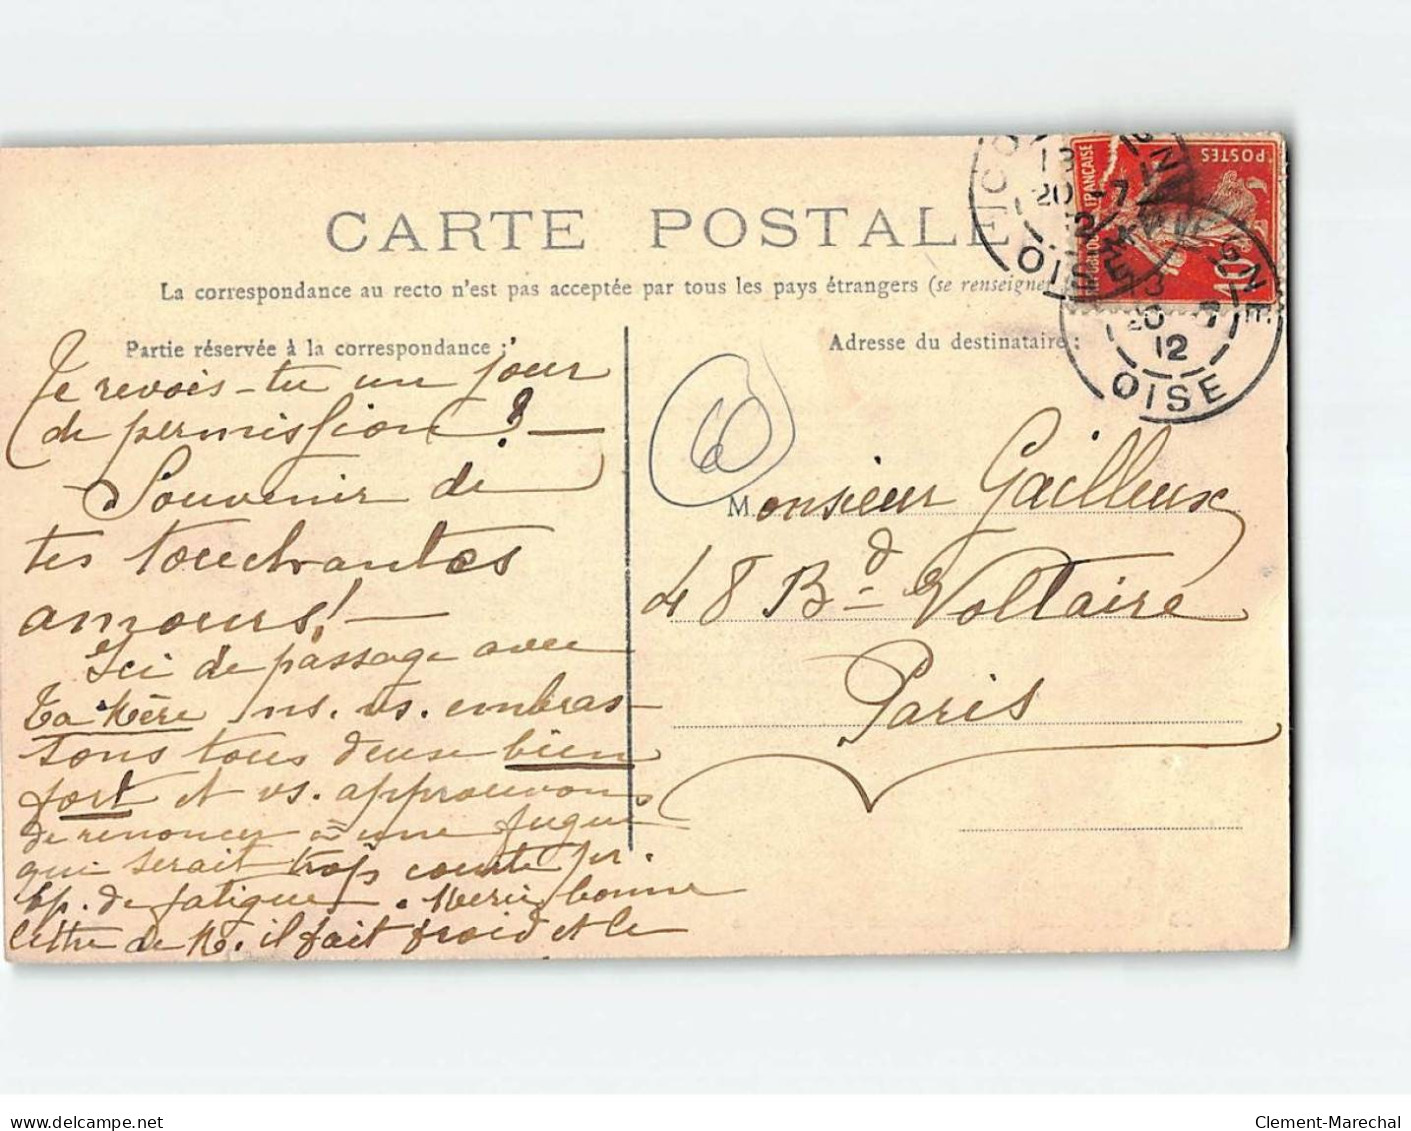 CARTE POSTALE
La correspondance au recto n'est pas acceptée par tous les pays étrangers (se renseigner
Partie réservée à la correspondance :
Adresse du destinataire :
Te revois-tu un jour
de permission ? —
Souvenir de
tes touchantes
amours ! —
Ici de passage avec
ta Mère ns. vs. embras-
sons tous deux bien
fort et vs. approuvons
de renoncer à une fugue
qui serait trop courte pr.
bp. de fatigue. Merci bonne
lettre de M. il fait froid et le
60
Monsieur Gailleux
48 Bd Voltaire
Paris
POSTES
FRANÇAISE
10
13
20 -7
12
OISE
GNE
20 -7
12
OISE
delcampe.net
Clement-Marechal